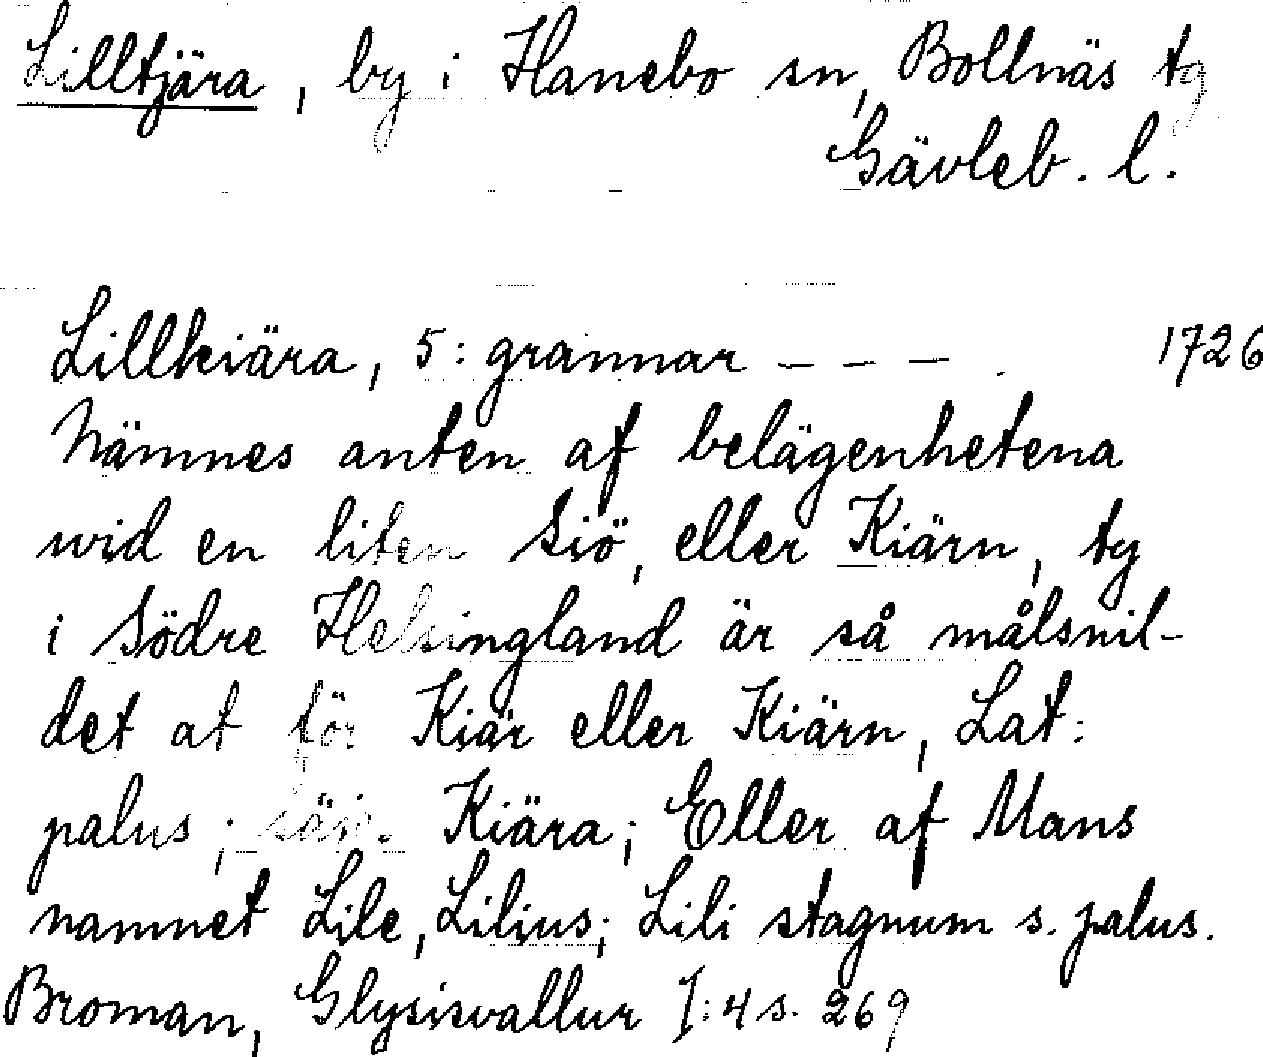 Lilltjära, by i Hanebo sn, Bollnäs tg
Gävleb. l.
Lillkiära, 5: grannar - - - 1726
Nämnes anten af belägenhetena
wid en liten Siö, eller Kiärn, ty
i Södre Helsingland är så målsnil-
det at för Kiär eller Kiärn, Lat:
palus; Kiära; Eller af Mans
namnet Lile, Lilius; Lili stagnum s. palus.
Broman, Glysisvallur I:4 s. 269